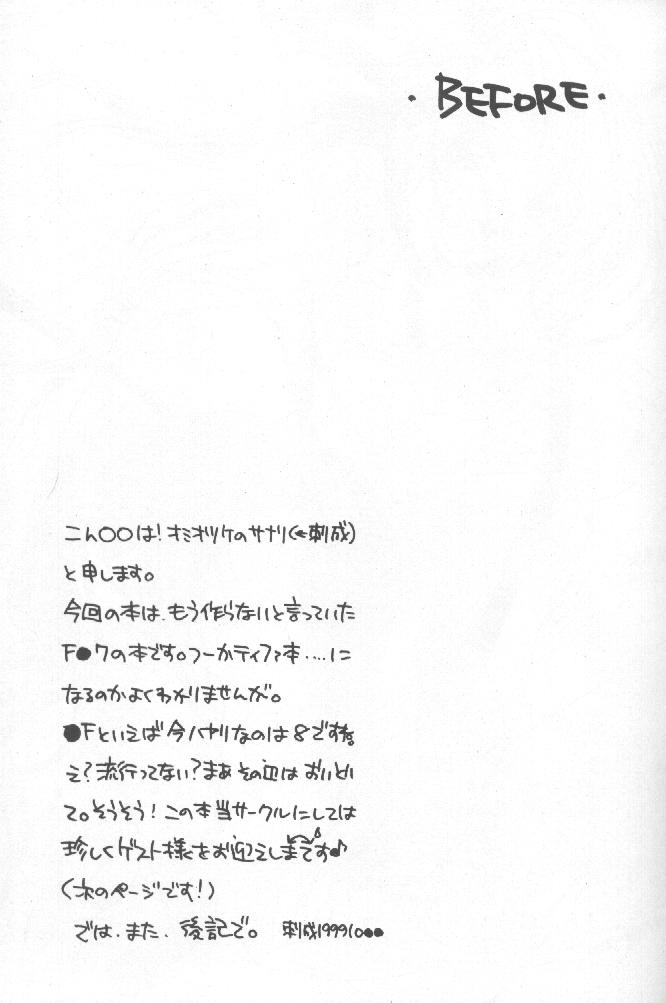 ・BEFORE・
こん○○は!オミオツケのサナリ(←刺成)
と申します。
今回の本は、もう作らないと言っていた
F●7の本です。つーかティファ本‥‥に
なるのかよくわかりませんが。
●Fといえば今ハヤリなのは8ですね。
え?流行ってない?まぁその辺はおいとい
て。そうそう!この本当サークルにしては
珍しくゲスト様をお迎えしまです♪
(次のページです!)
では、また、後記で。 刺成199910●●